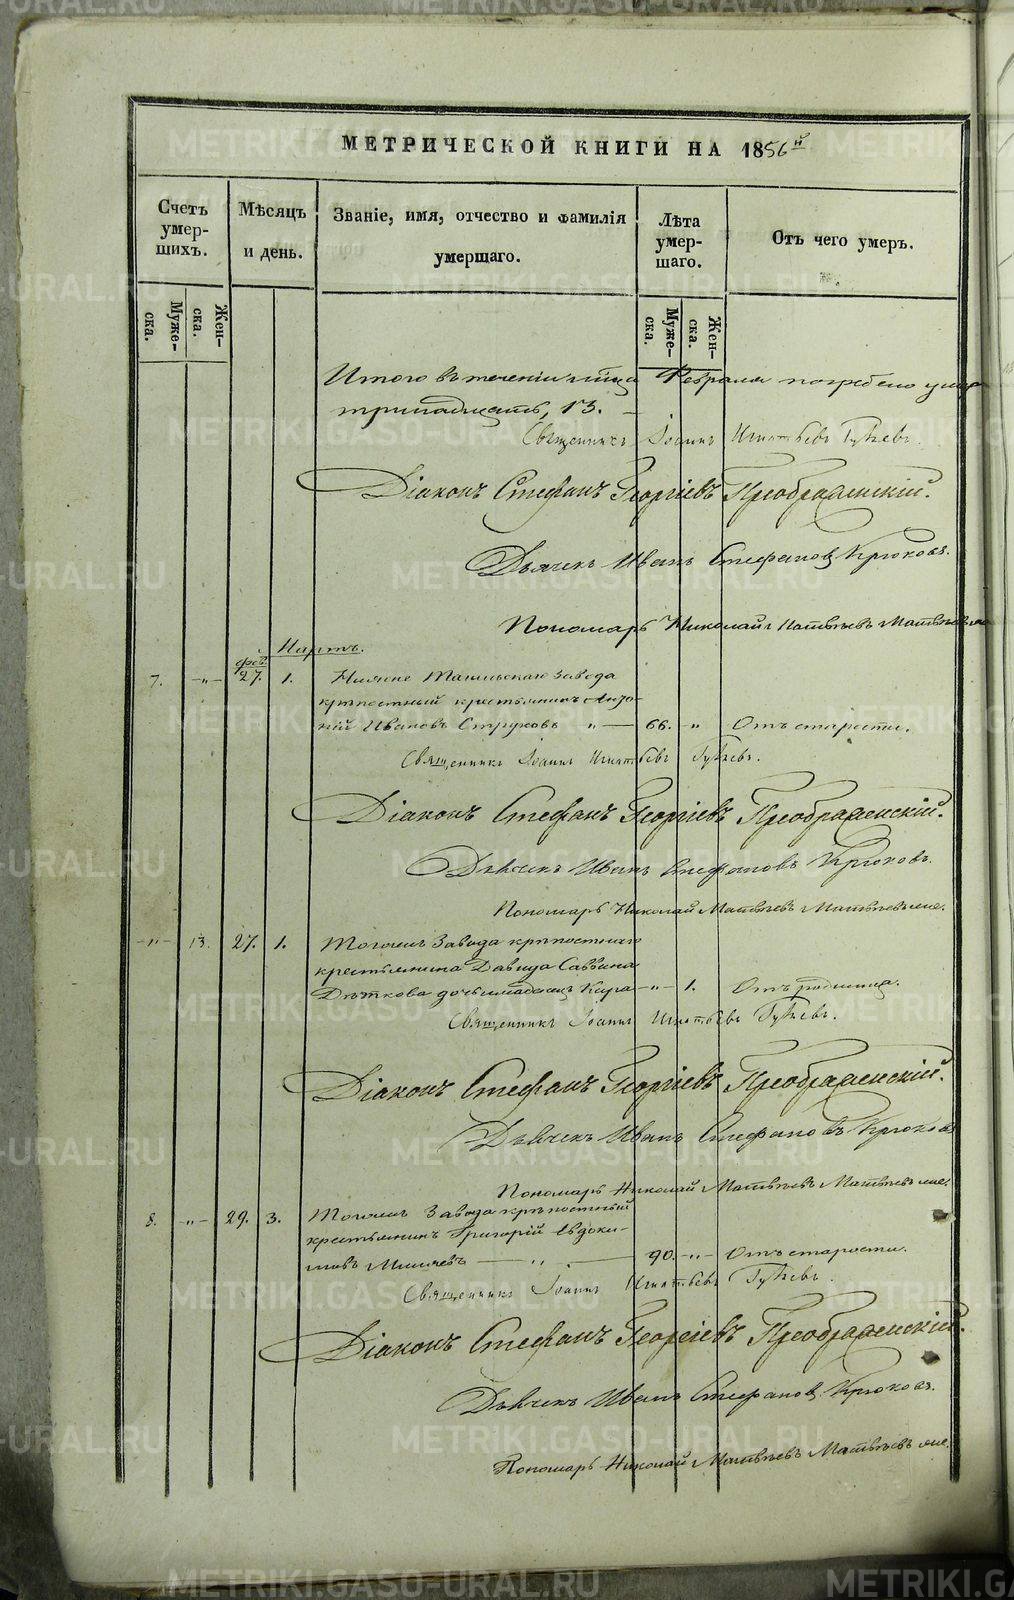 МЕТРИЧЕСКОЙ КНИГИ НА 1856й
Счетъ умер-шихъ.
Мѣсяцъ и день.
Званіе, имя, отчество и фамилія умершаго.
Лѣта умер-шаго.
Отъ чего умеръ.
Муже-ска.
Жен-ска.
Муже-ска.
Жен-ска.
Итого въ теченіи мѣсяца Февраля погребено умер
тринадцать, 13.
Священникъ Іоаннъ Игнатьевъ
Діаконъ Стефанъ Георгіевъ Преображенскій.
Дьячекъ Иванъ Стефановъ Крюковъ.
Пономарь Николай Матвѣевъ
Мартъ.
фев.
7. -"- 27. 1. Нижне Тагильскаго Завода
крѣпостный крестьянинъ
кій Ивановъ Струковъ " — 66. " Отъ старости.
Священникъ Іоаннъ Игнатьевъ
Діаконъ Стефанъ Георгіевъ Преображенскій.
Дьячекъ Иванъ Стефановъ Крюковъ.
Пономарь Николай Матвѣевъ
-"- 13. 27. 1. Тогожъ Завода крѣпостнаго
крестьянина Давида Саввина
дочь младенецъ -"- 1. Отъ родимца.
Священникъ Іоаннъ Игнатьевъ
Діаконъ Стефанъ Георгіевъ Преображенскій.
Дьячекъ Иванъ Стефановъ Крюковъ
Пономарь Николай Матвѣевъ
8. -"- 29. 3. Тогожъ Завода крѣпостный
крестьянинъ Григорій Евдоки-
мовъ — " — 90. -"- Отъ старости.
Священникъ Іоаннъ Игнатьевъ
Діаконъ Стефанъ Георгіевъ Преображенскій.
Дьячекъ Иванъ Стефановъ Крюковъ.
Пономарь Николай Матвѣевъ
METRIKI.GASO-URAL.RU